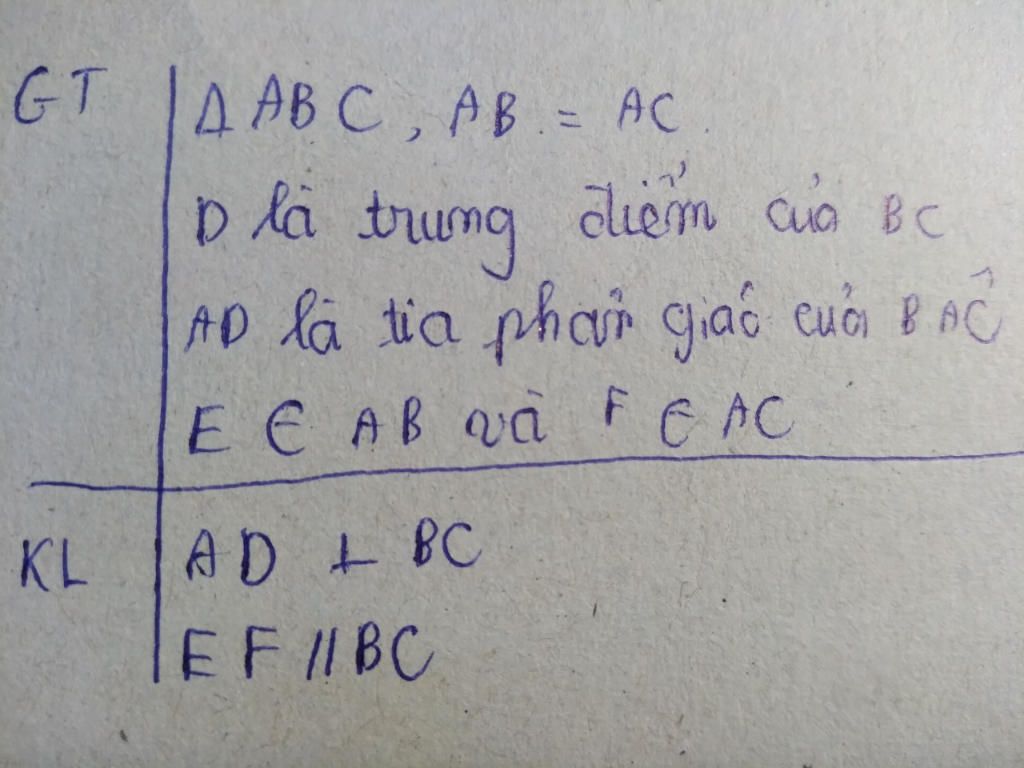 GT ΔABC, AB = AC.
D là trung điểm của BC
AD là tia phân giác của BAC^
E ∈ AB và F ∈ AC
KL AD ⊥ BC
EF // BC